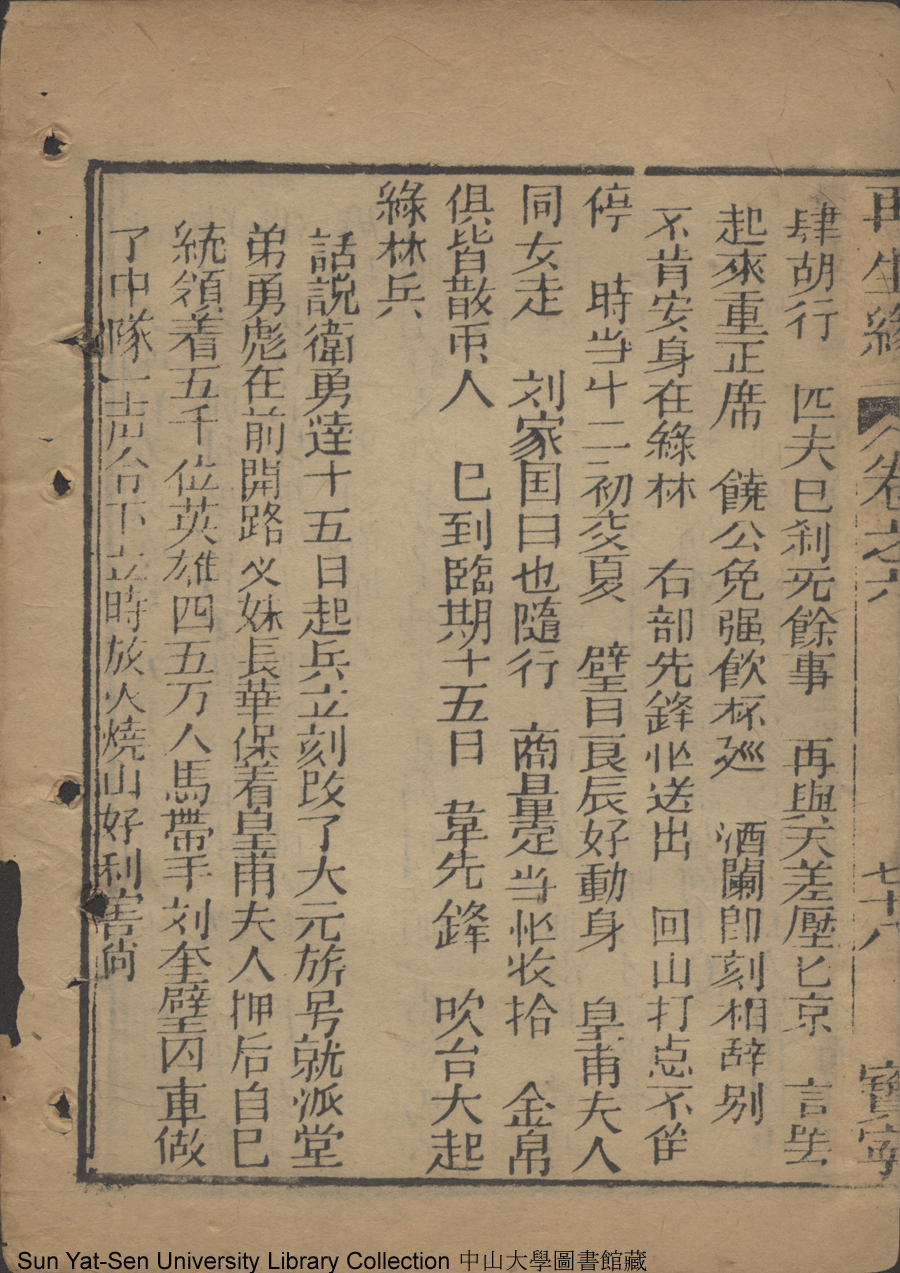 再生緣 卷之六 七十八 寶寧
肆胡行　匹夫已剎死餘事　再與天差壓匕京　言毕
起來重正席　饒公免强飲杯廵　酒闌即刻相辞别
不肯安身在綠林　右部先鋒忙送出　回山打点不從
停　時当十二初交夏　壁日良辰好動身　皇甫夫人
同女走　刘家国曰也隨行　商量定当忙收拾　金帛
俱皆散衆人　已到臨期十五日　韋先鋒　吹台大起
綠林兵
話說衛勇達十五日起兵立刻改了大元旂号就派堂
弟勇彪在前開路父妹長華保着皇甫夫人押后自已
統領着五千位英雄四五万人馬帶手刘奎壁囚車做
了中隊一声台下立時放火燒山好利害尚
Sun Yat-Sen University Library Collection 中山大學圖書館藏